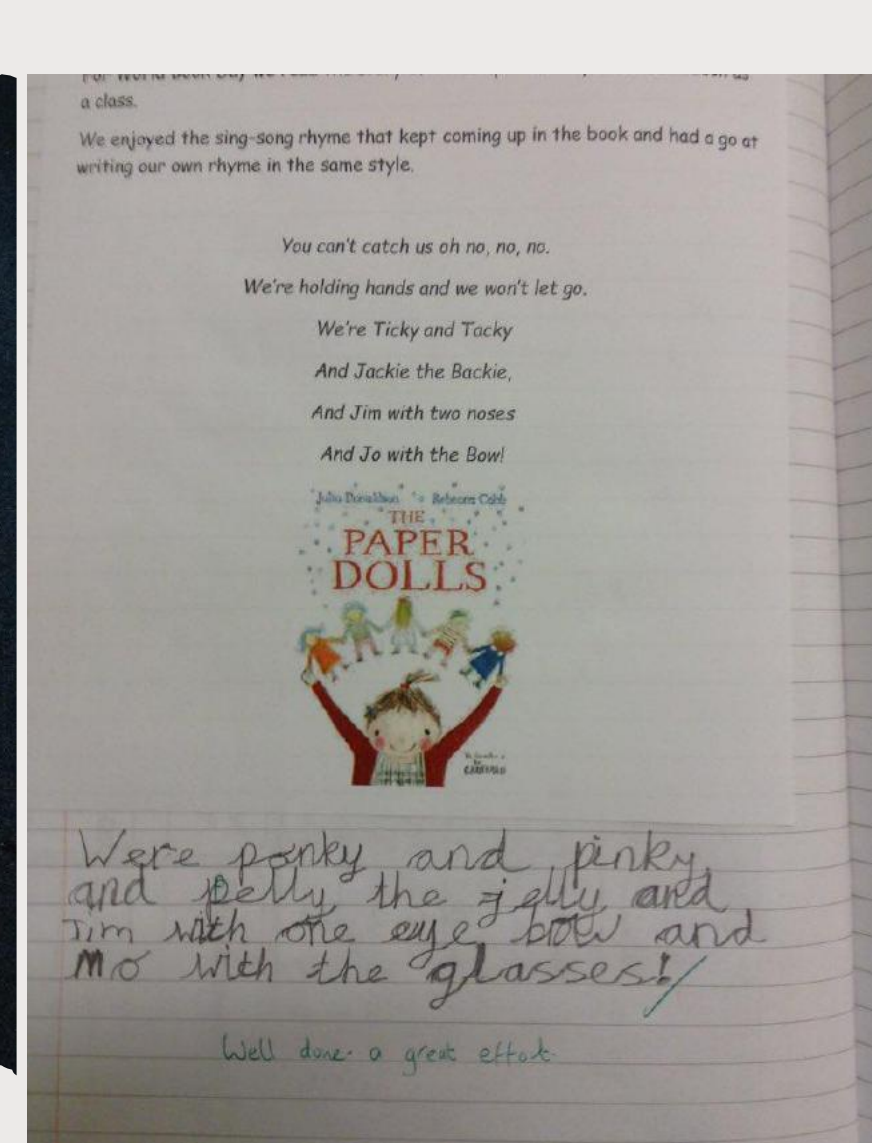 a class.
We enjoyed the sing-song rhyme that kept coming up in the book and had a go at
writing our own rhyme in the same style.
You can't catch us oh no, no, no.
We're holding hands and we won't let go.
We're Ticky and Tacky
And Jackie the Backie,
And Jim with two noses
And Jo with the Bow!
Julia Donaldson Rebecca Cobb
THE
PAPER
DOLLS
Were ponky and pinky
and pelly the jelly and
Tim with one eye bow and
Mo with the glasses!
Well done. a great effort.